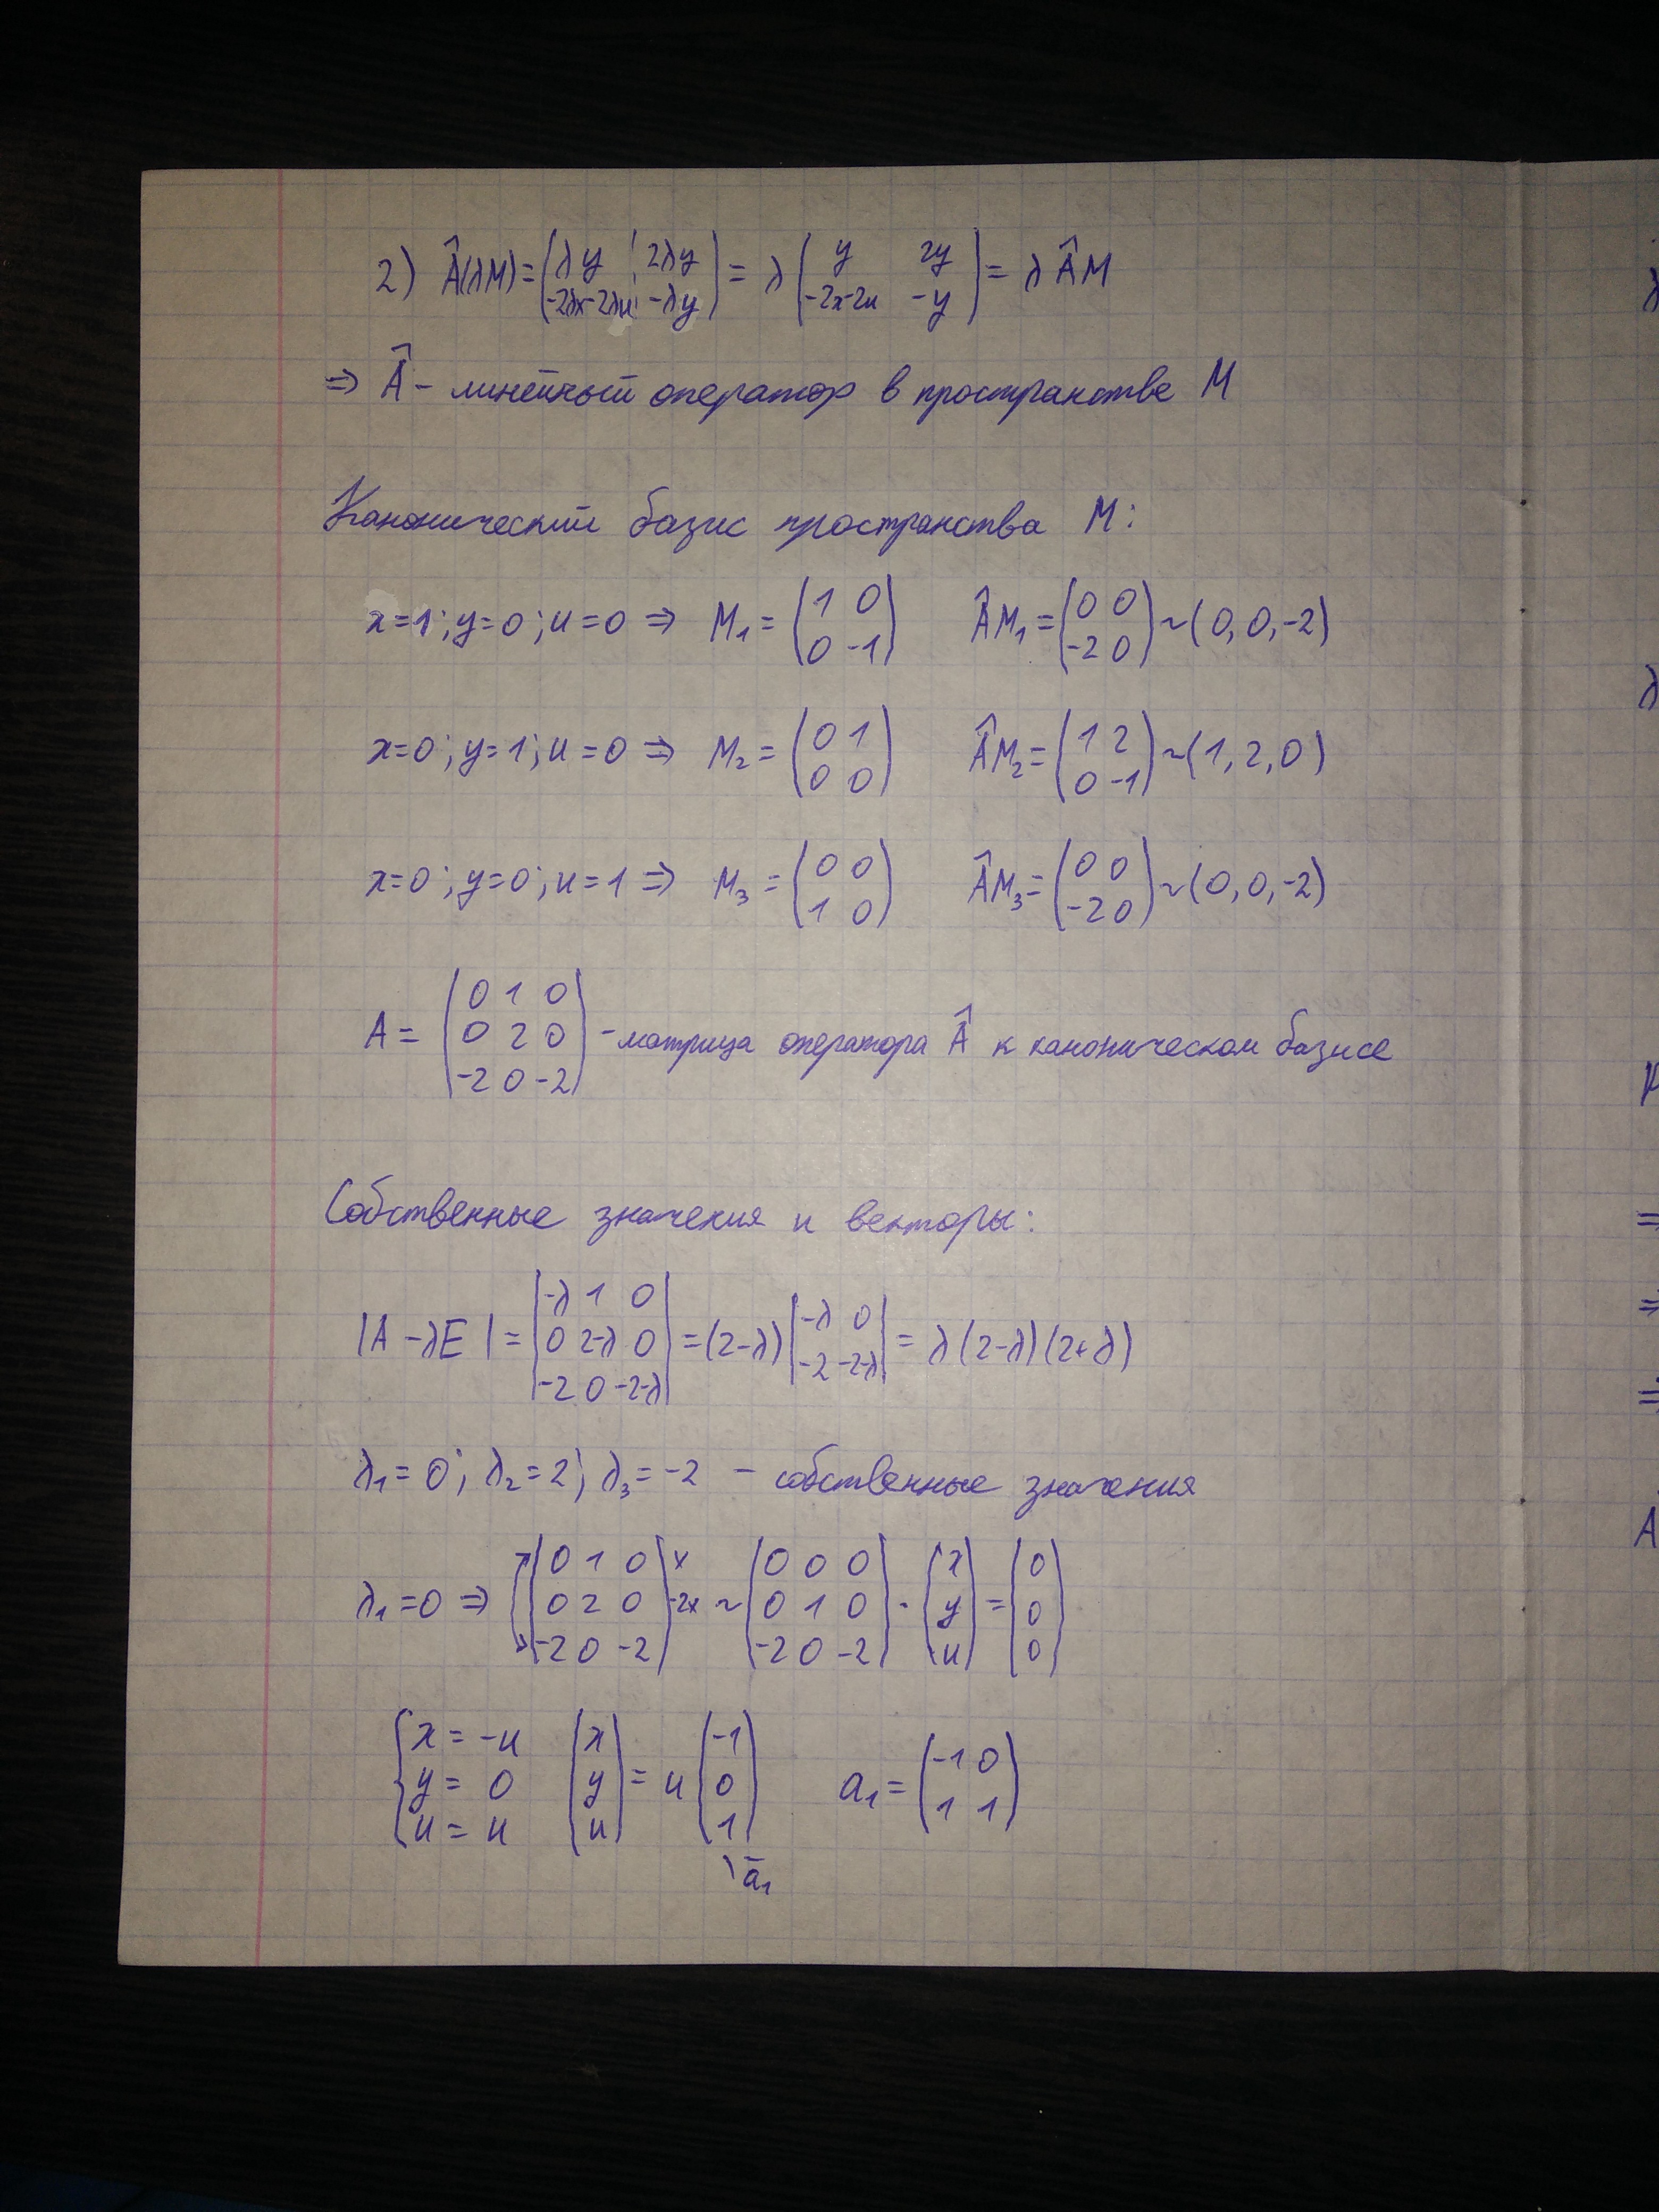 2) Â(λM) = (λy 2λy; -2λx-2λu -λy) = λ (y 2y; -2x-2u -y) = λ ÂM
⇒ Â - линейный оператор в пространстве M
Канонический базис пространства M:
x=1; y=0; u=0 ⇒ M₁ = (1 0; 0 -1) ÂM₁ = (0 0; -2 0) ~ (0, 0, -2)
x=0; y=1; u=0 ⇒ M₂ = (0 1; 0 0) ÂM₂ = (1 2; 0 -1) ~ (1, 2, 0)
x=0; y=0; u=1 ⇒ M₃ = (0 0; 1 0) ÂM₃ = (0 0; -2 0) ~ (0, 0, -2)
A = (0 1 0; 0 2 0; -2 0 -2) - матрица оператора Â к каноническом базисе
Собственные значения и векторы:
|A - λE| = |-λ 1 0; 0 2-λ 0; -2 0 -2-λ| = (2-λ) |-λ 0; -2 -2-λ| = λ(2-λ)(2+λ)
λ₁ = 0; λ₂ = 2; λ₃ = -2 - собственные значения
λ₁ = 0 ⇒ (0 1 0; 0 2 0; -2 0 -2) x -2x ~ (0 0 0; 0 1 0; -2 0 -2) · (x; y; u) = (0; 0; 0)
{x = -u; y = 0; u = u (x; y; u) = u (-1; 0; 1) a₁ = (-1 0; 1 1)
ā₁